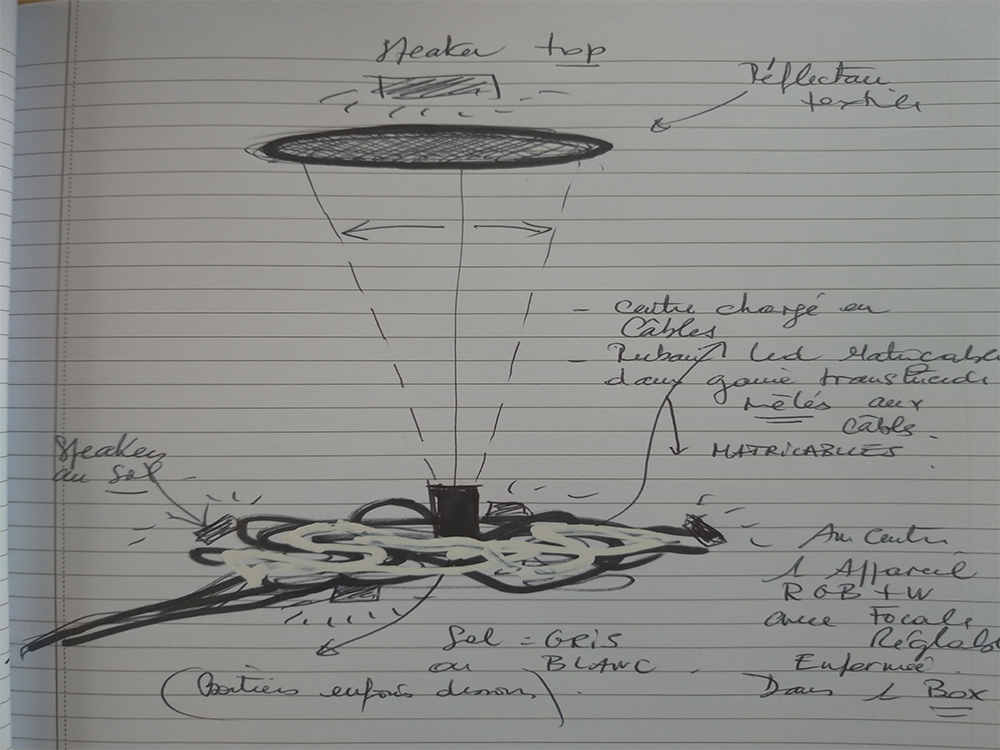 Speaker top
Réflecteur
textile
- Centre chargé en
Câbles
- Ruban Led Matricable
dans gaine translucide
Mêlés aux
Câbles.
MATRICABLES
Speaker
au Sol
Au Centre
1 Appareil
RGB + W
avec Focale
Réglable
Enfermée
Dans 1 Box
Sol = GRIS
ou BLANC
(Boitiers enfouis dessous).